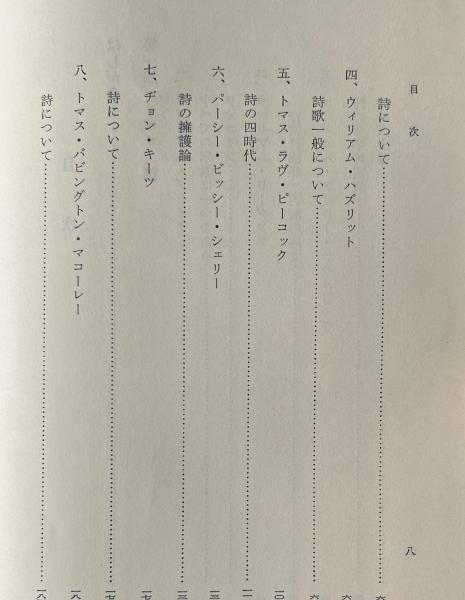 目次
八
詩について
四、ウィリアム・ハズリット
詩歌一般について
五、トマス・ラヴ・ピーコック
詩の四時代
六、パーシー・ビッシー・シェリー
詩の擁護論
七、ヂョン・キーツ
詩について
八、トマス・バビングトン・マコーレー
詩について